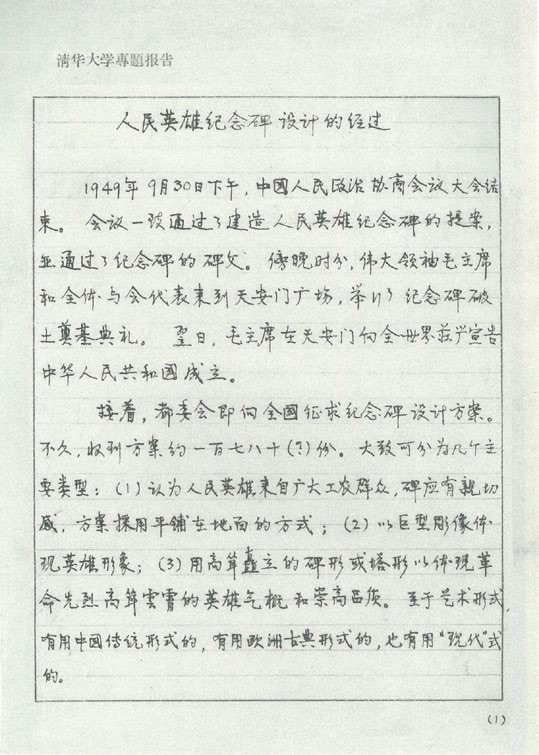 清华大学專題报告
人民英雄纪念碑设计的经过
1949年9月30日下午，中國人民政治协商会议大会结
束。会议一致通过了建造人民英雄纪念碑的提案，
並通过了纪念碑的碑文。傍晚时分，伟大领袖毛主席
和全体与会代表来到天安门广场，举行了纪念碑破
土奠基典礼。翌日，毛主席在天安门向全世界莊严宣告
中华人民共和國成立。
接着，都委会即向全国征求纪念碑设计方案。
不久，收到方案约一百七八十(？)份。大致可分为几个主
要类型：(1)认为人民英雄来自广大工农群众，碑应有親切
感，方案採用平铺在地面的方式；(2)以巨型彫像体
现英雄形象；(3)用高耸矗立的碑形或塔形以体现革
命先烈高耸雲霄的英雄气概和崇高品质。至于艺术形式，
有用中國传统形式的，有用欧洲古典形式的，也有用“现代”式
的。
(1)